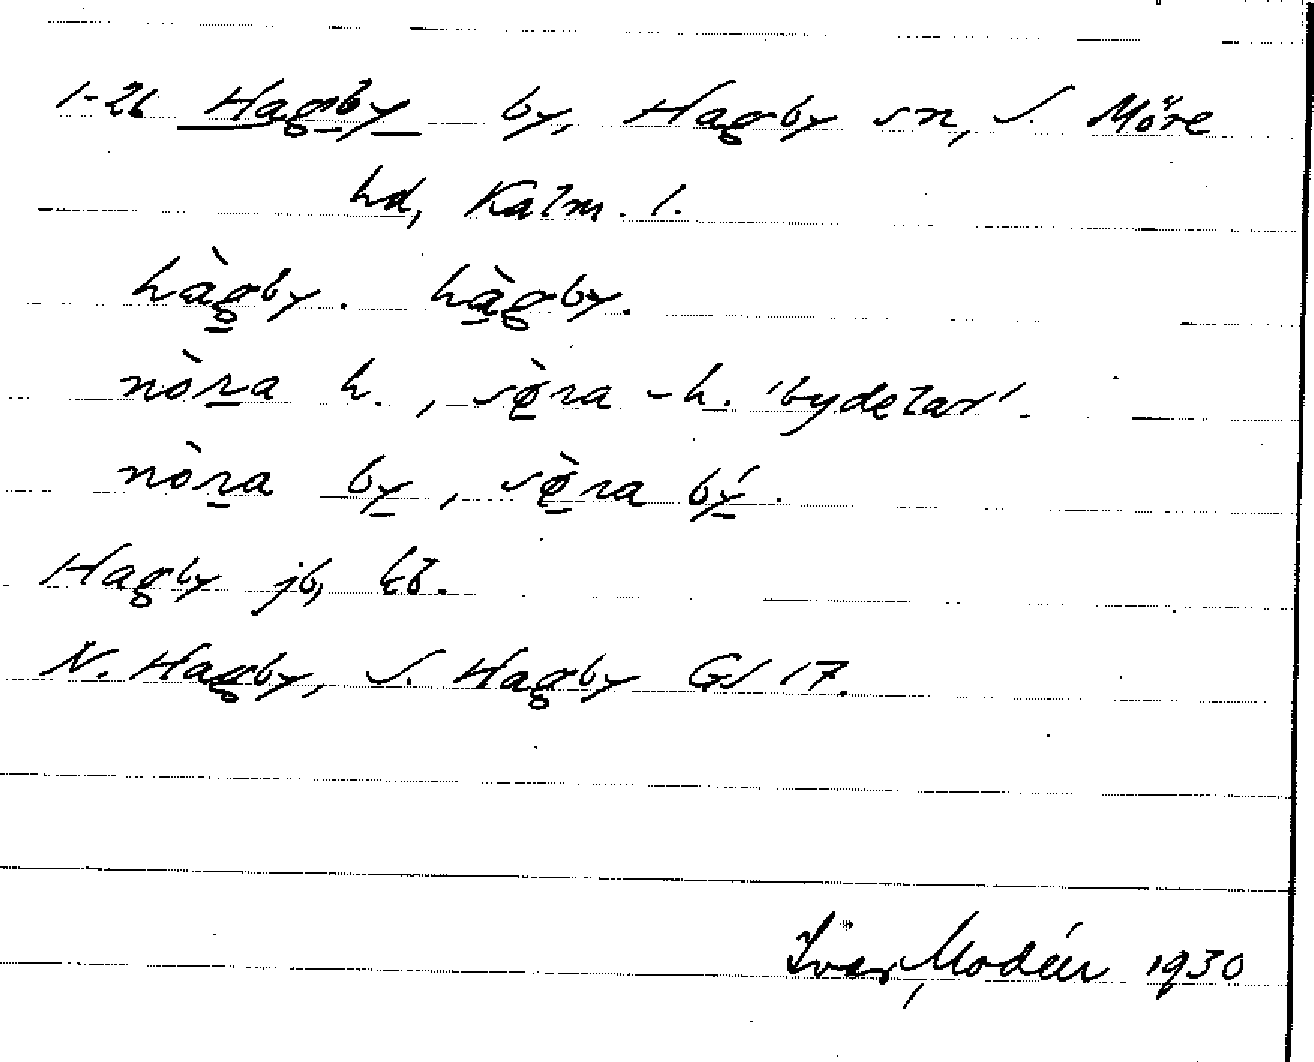 1-26 Hagby by, Hagby sn, S. Möre
hd, Kalm. l.
hàgby. hàgby.
nòra h., sø̀ra -h. 'bydelar'.
nòra by, sø̀ra bý.
Hagby jb, kb.
N. Hagby, S. Hagby GS 17.
Ivar Modéer 1930